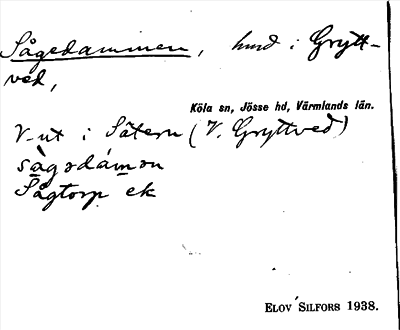 Sågedammen, hund i Grytt-
ved,
Köla sn, Jösse hd, Värmlands län.
V-ut i Sätern (V. Gryttved)
sàgədámən
Sågtorp ek
ELOV SILFORS 1938.